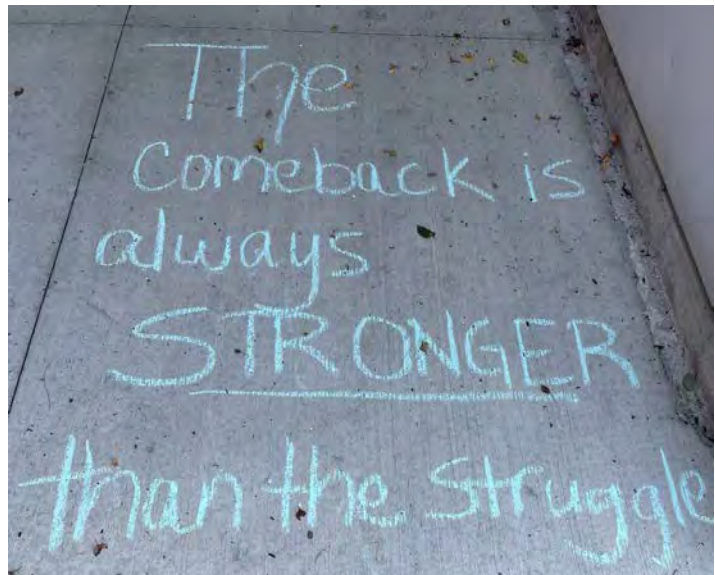 The
Comeback is
always
STRONGER
than the struggle